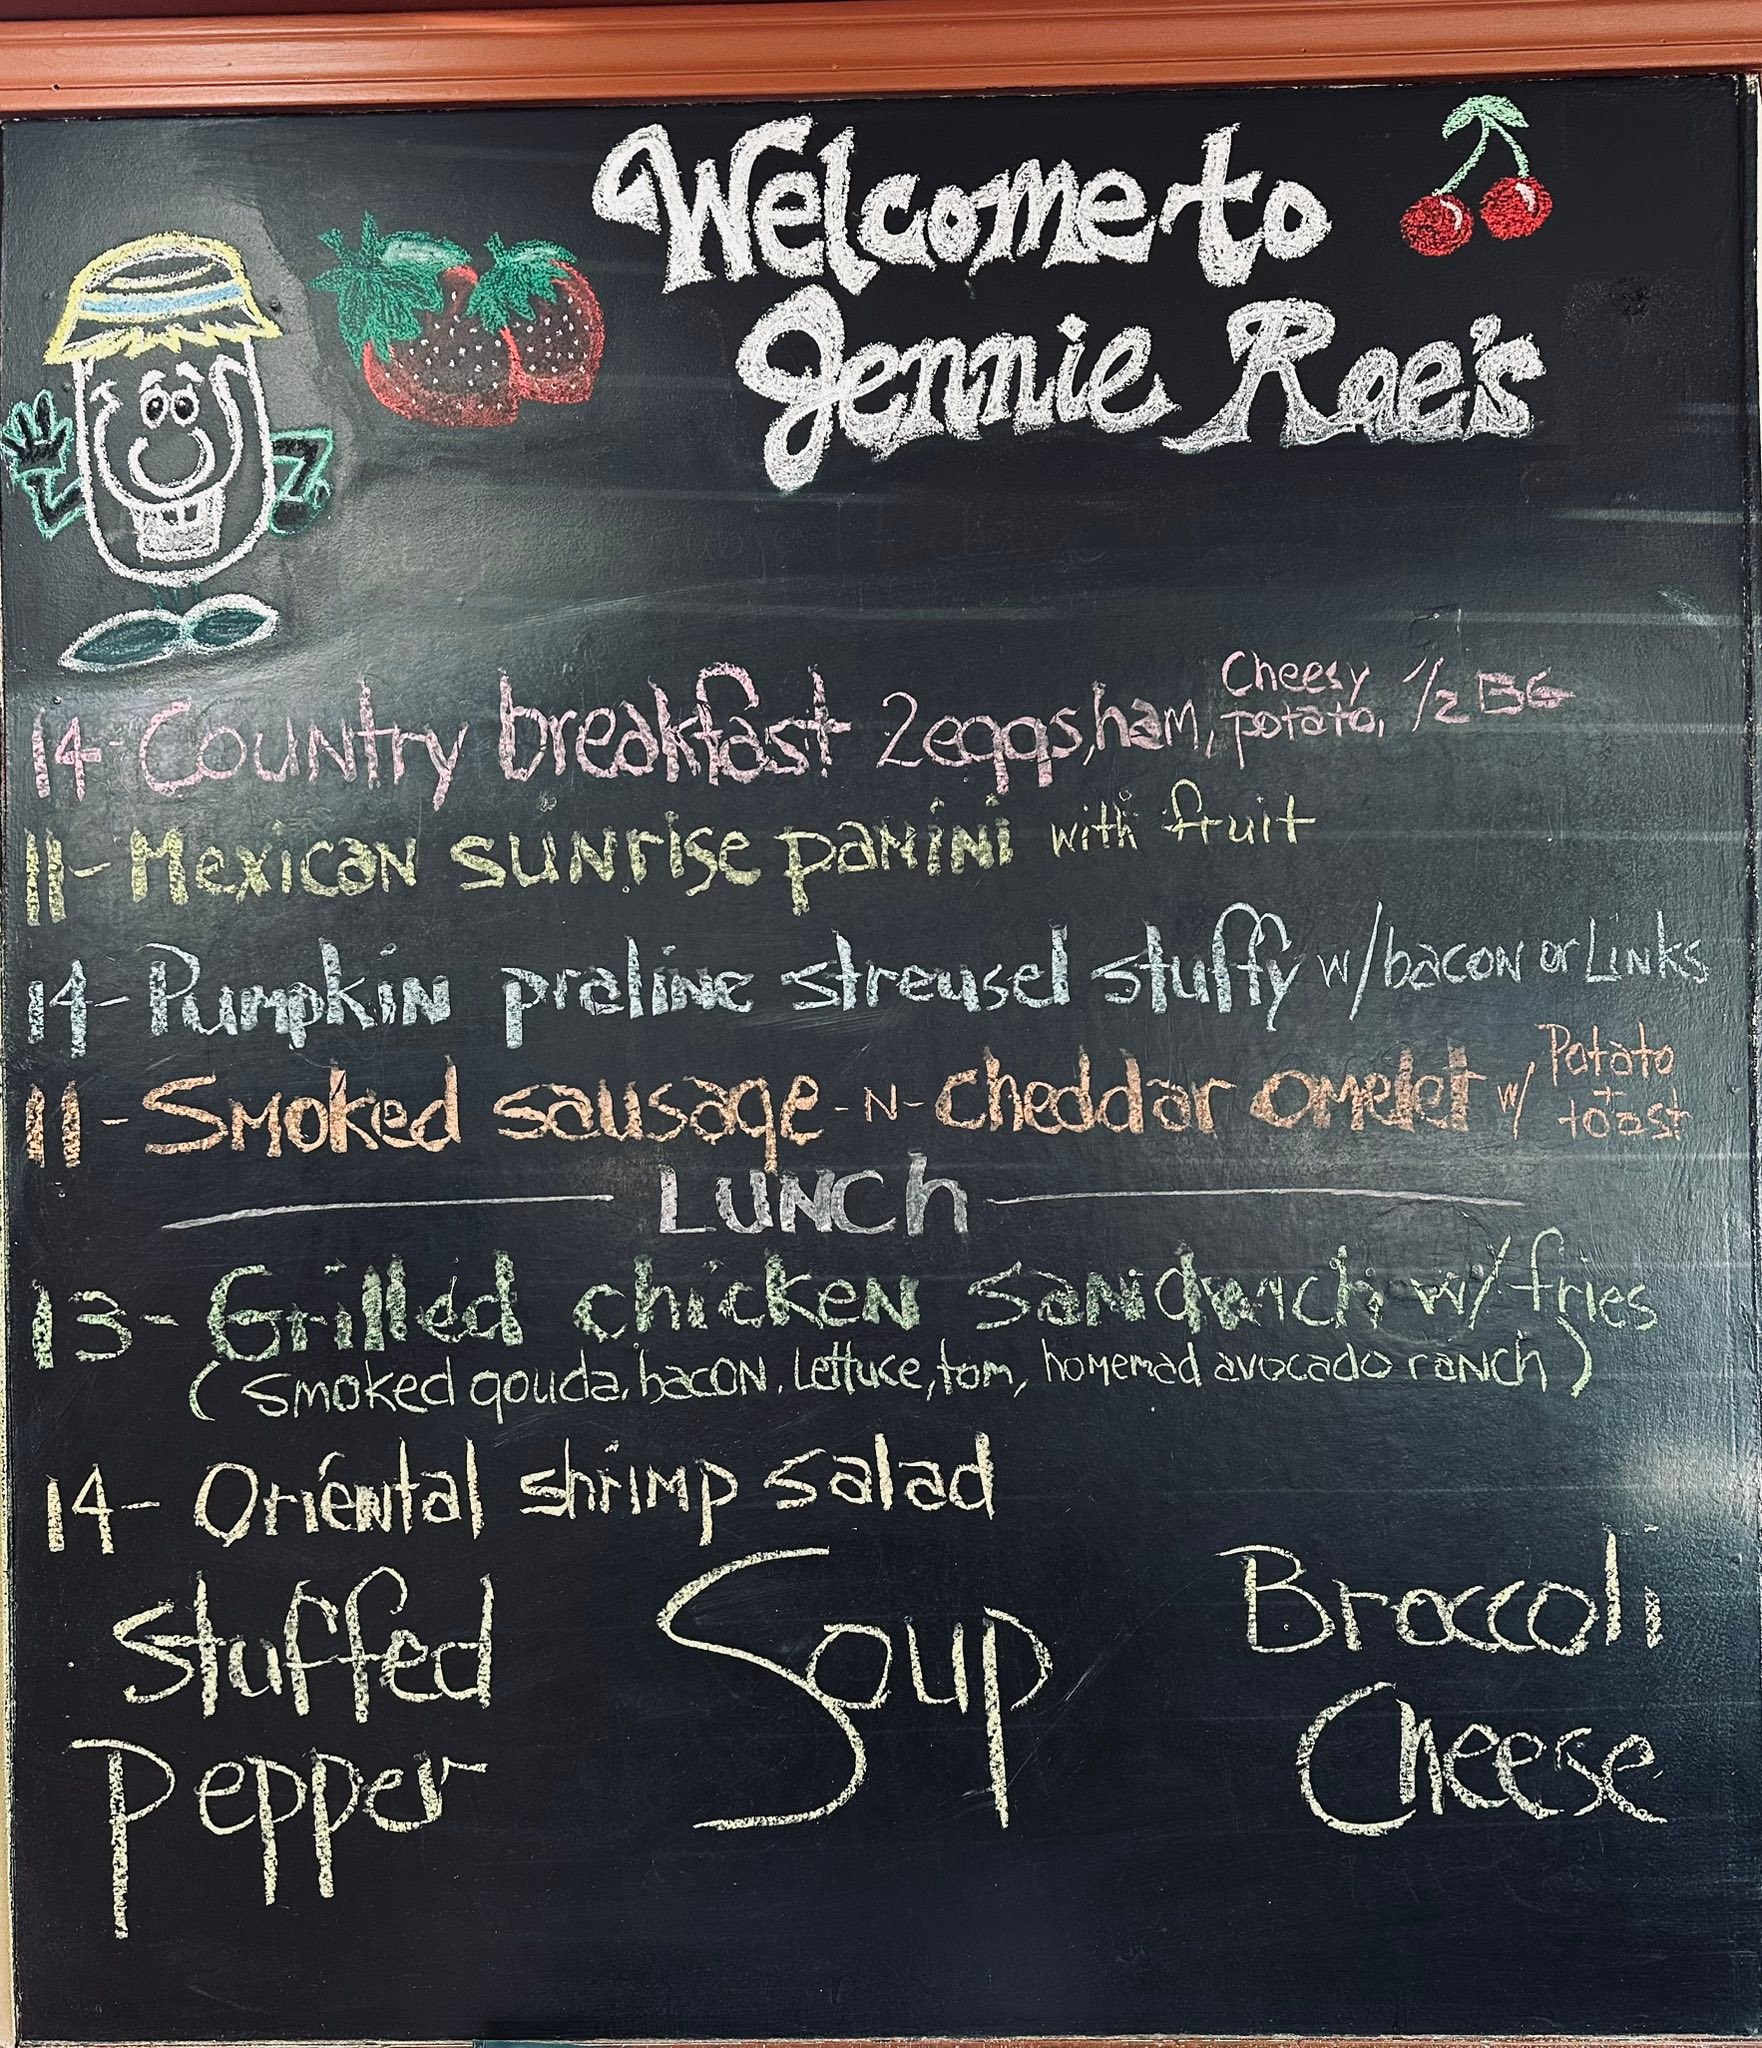 Welcome to
Jennie Rae's
14- Country breakfast 2 eggs, ham, Cheesy potato, 1/2 BG
11- Mexican sunrise panini with fruit
14- Pumpkin praline streusel stuffy w/ bacon or Links
11- Smoked sausage -N- cheddar omelet w/ Potato + toast
LUNCh
13- Grilled chicken sandwich w/ fries
(smoked gouda, bacon, lettuce, tom, homemad avocado ranch)
14- Oriental shrimp salad
Stuffed Pepper
Soup
Broccoli Cheese